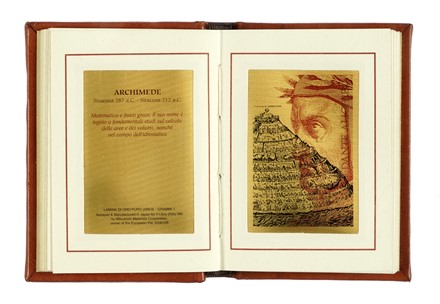 ARCHIMEDE
SIRACUSA 287 A.C. - SIRACUSA 212 A.C.
Matematico e fisico greco: il suo nome è
legato a fondamentali studi sul calcolo
delle aree e dei volumi, nonché
nel campo dell'idrostatica
LAMINA DI ORO PURO (999,9) - GRAMMI 1
by Mitsubishi Materials Corporation,